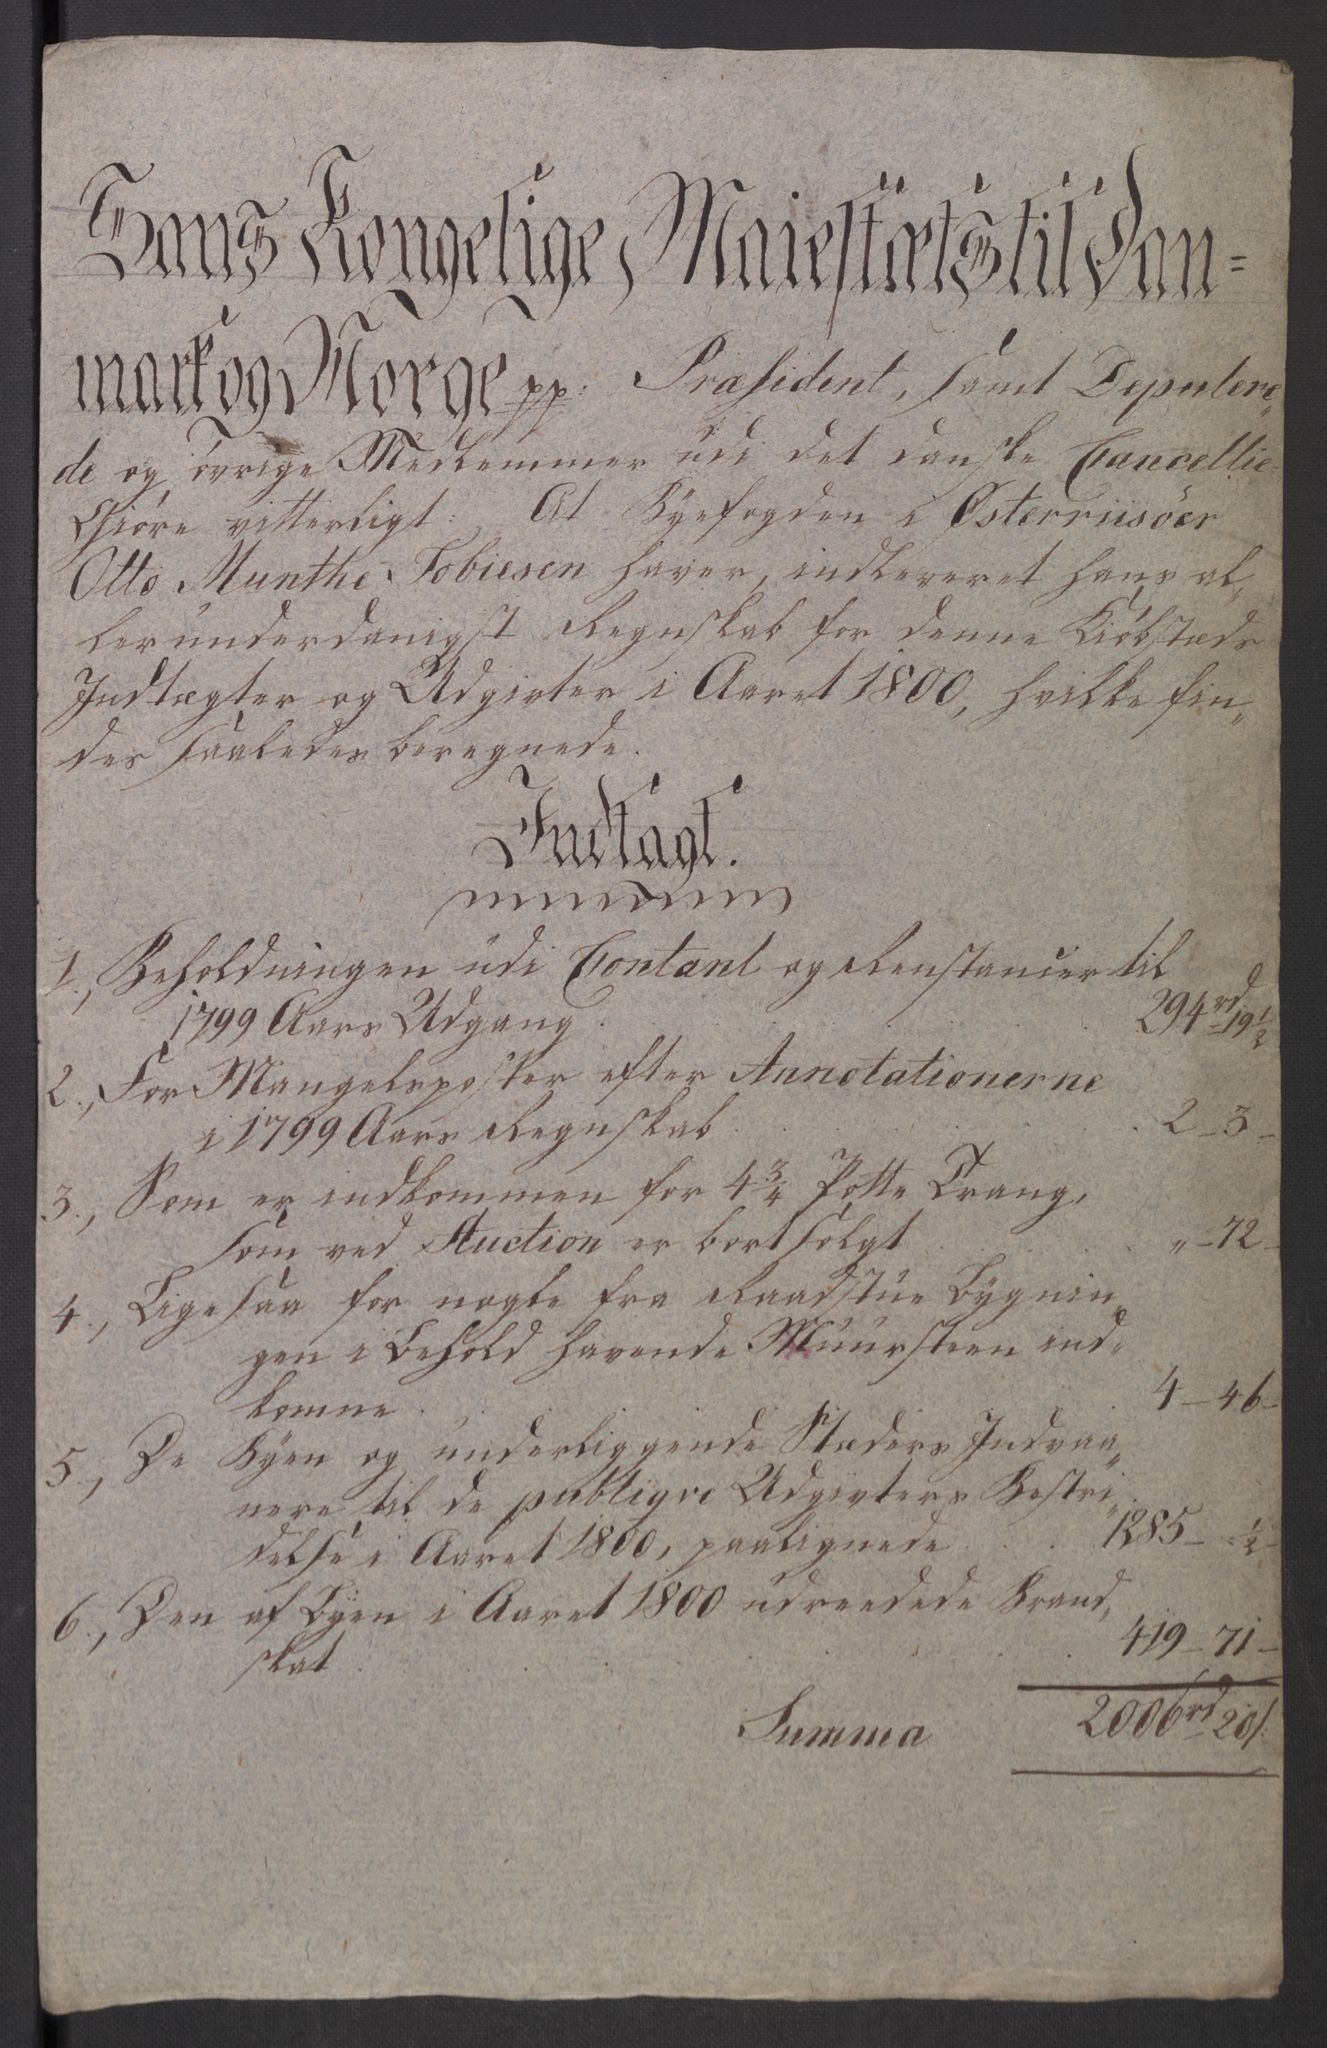 Hans Kongelige Maiestæts til Dan=
mark og Norge pp. Præsident, samt Deputere„
de og övrige Medlemmer udi det danske Cancellie
Giöre vitterligt: At Byefogden i Østerriisöer
Otto Munthe Tobiesen haver, indleveret hans al„
lerunderdanigst Regnskab for denne Kiöbstæds
Indtægter og Udgivter i Aaret 1800, hvilke fin„
des saaledes beregnede.
Indtægt.
1., Beholdningen udi Contant og Restancier til
1799 Aars Udgang . . . 294 rd 19 1/2
2., For Mangelsposter efter Annotationerne
i 1799 Aars Regnskab . . . 2 - 3 -
3., Som er indkommen for 4 3/4 Potte Trang,
som ved Auction er bortsolgt . . . „ - 72 -
4., Ligesaa for nogle fra Raadstue Bygnin„
gen i behold havende Muursteen ind„
komne . . . 4 - 46 -
5., De Byen og underliggende Stæders Indvaa„
nere til de publiqve Udgivters Bestri„
delse i Aaret 1800, paalignede . . . 1285 - 1/2 -
6., Den af Byen i Aaret 1800 udreedede Brand„
skat . . . 419 - 71 -
Summa 2006 rd 20 s: